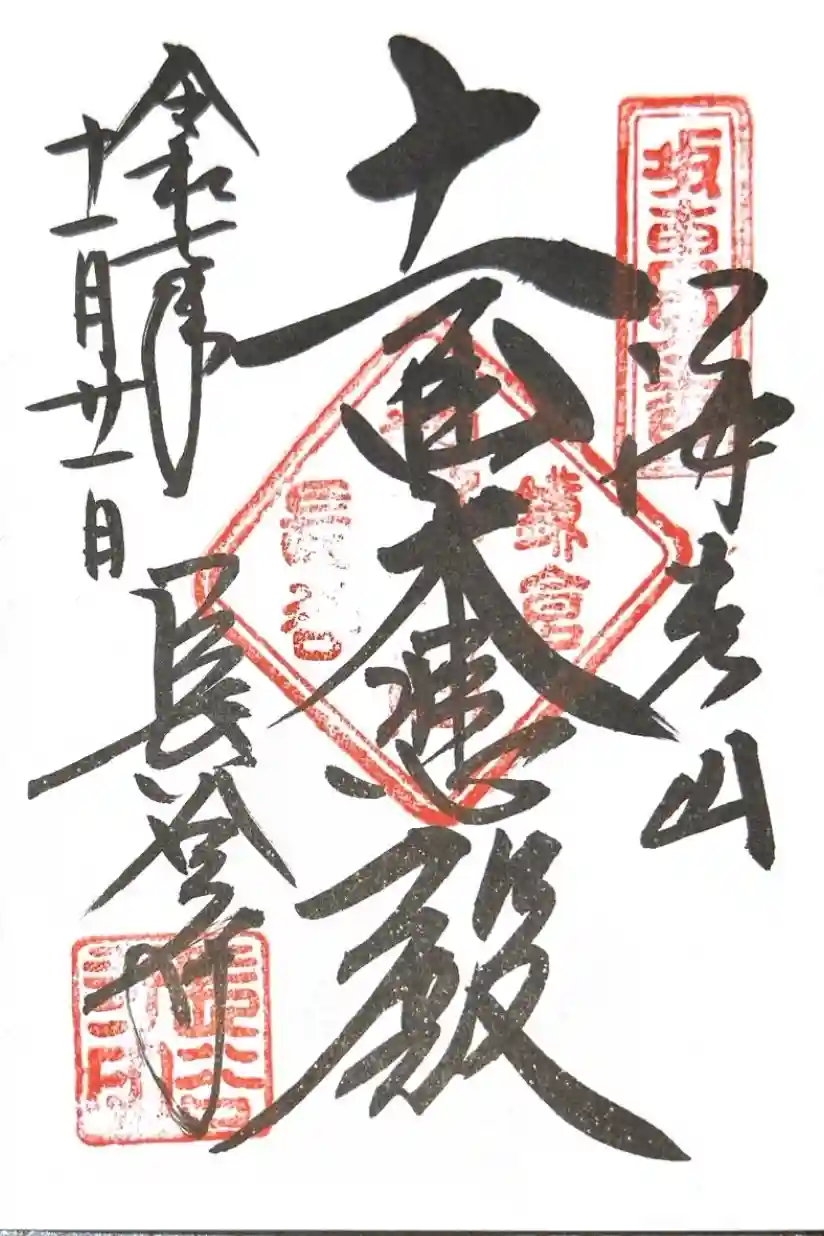 坂東
海光山
十一面大悲殿
鎌倉
長谷
令和七年
十一月廿一日
長谷寺
長谷寺印